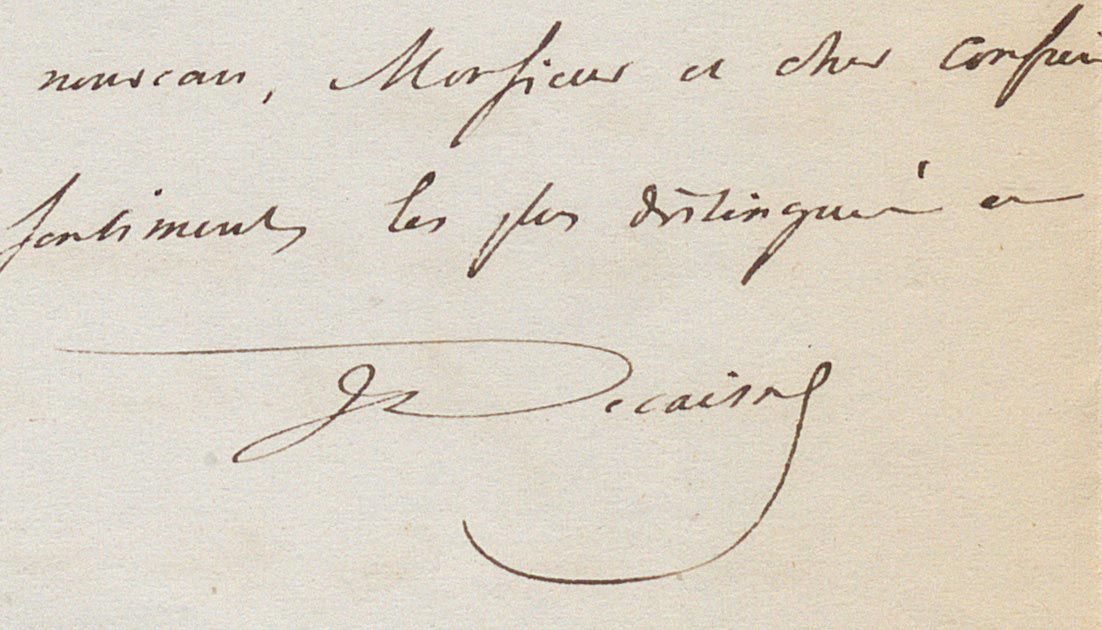 nouveau, Monsieur et cher confrè
sentiments les plus distingués et
J Decaisne